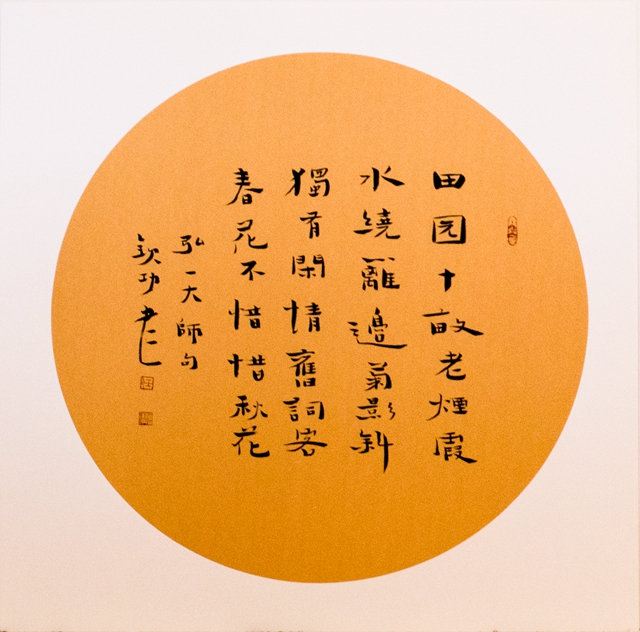 田园十畝老煙霞
水繞籬邊菊影斜
獨有閑情舊詞客
春花不惜惜秋花
弘一大師句
欽功